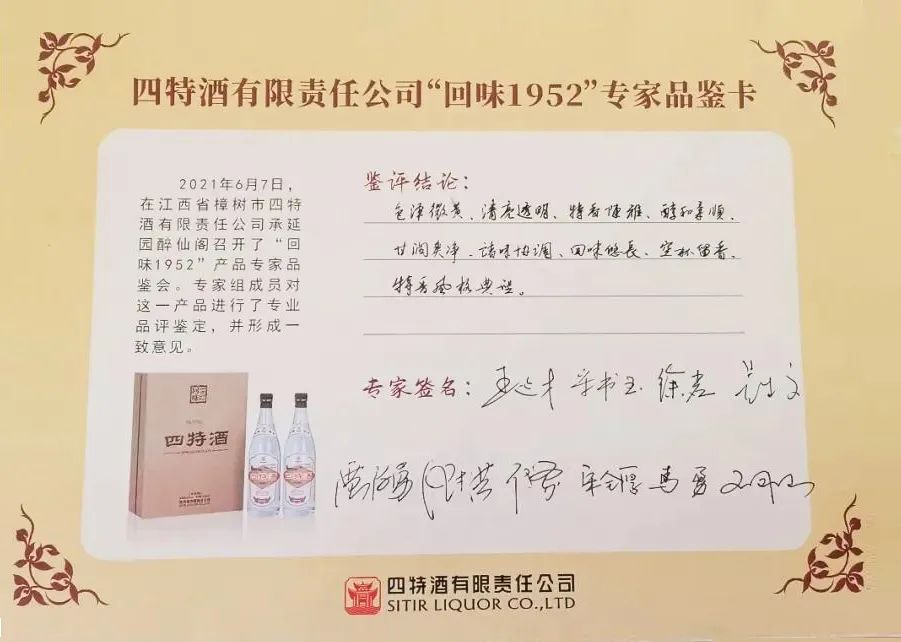 四特酒有限责任公司“回味1952”专家品鉴卡
2021年6月7日，
在江西省樟树市四特
酒有限责任公司承延
园醉仙阁召开了“回
味1952”产品专家品
鉴会。专家组成员对
这一产品进行了专业
品评鉴定，并形成一
致意见。
鉴评结论：
色泽微黄、清亮透明、特香优雅、醇和柔顺、
甘润爽净、诸味协调、回味悠长、空杯留香、
特香风格典型。
专家签名：
王延才
徐岩
马勇
四特酒
四特酒有限责任公司
SITIR LIQUOR CO.,LTD